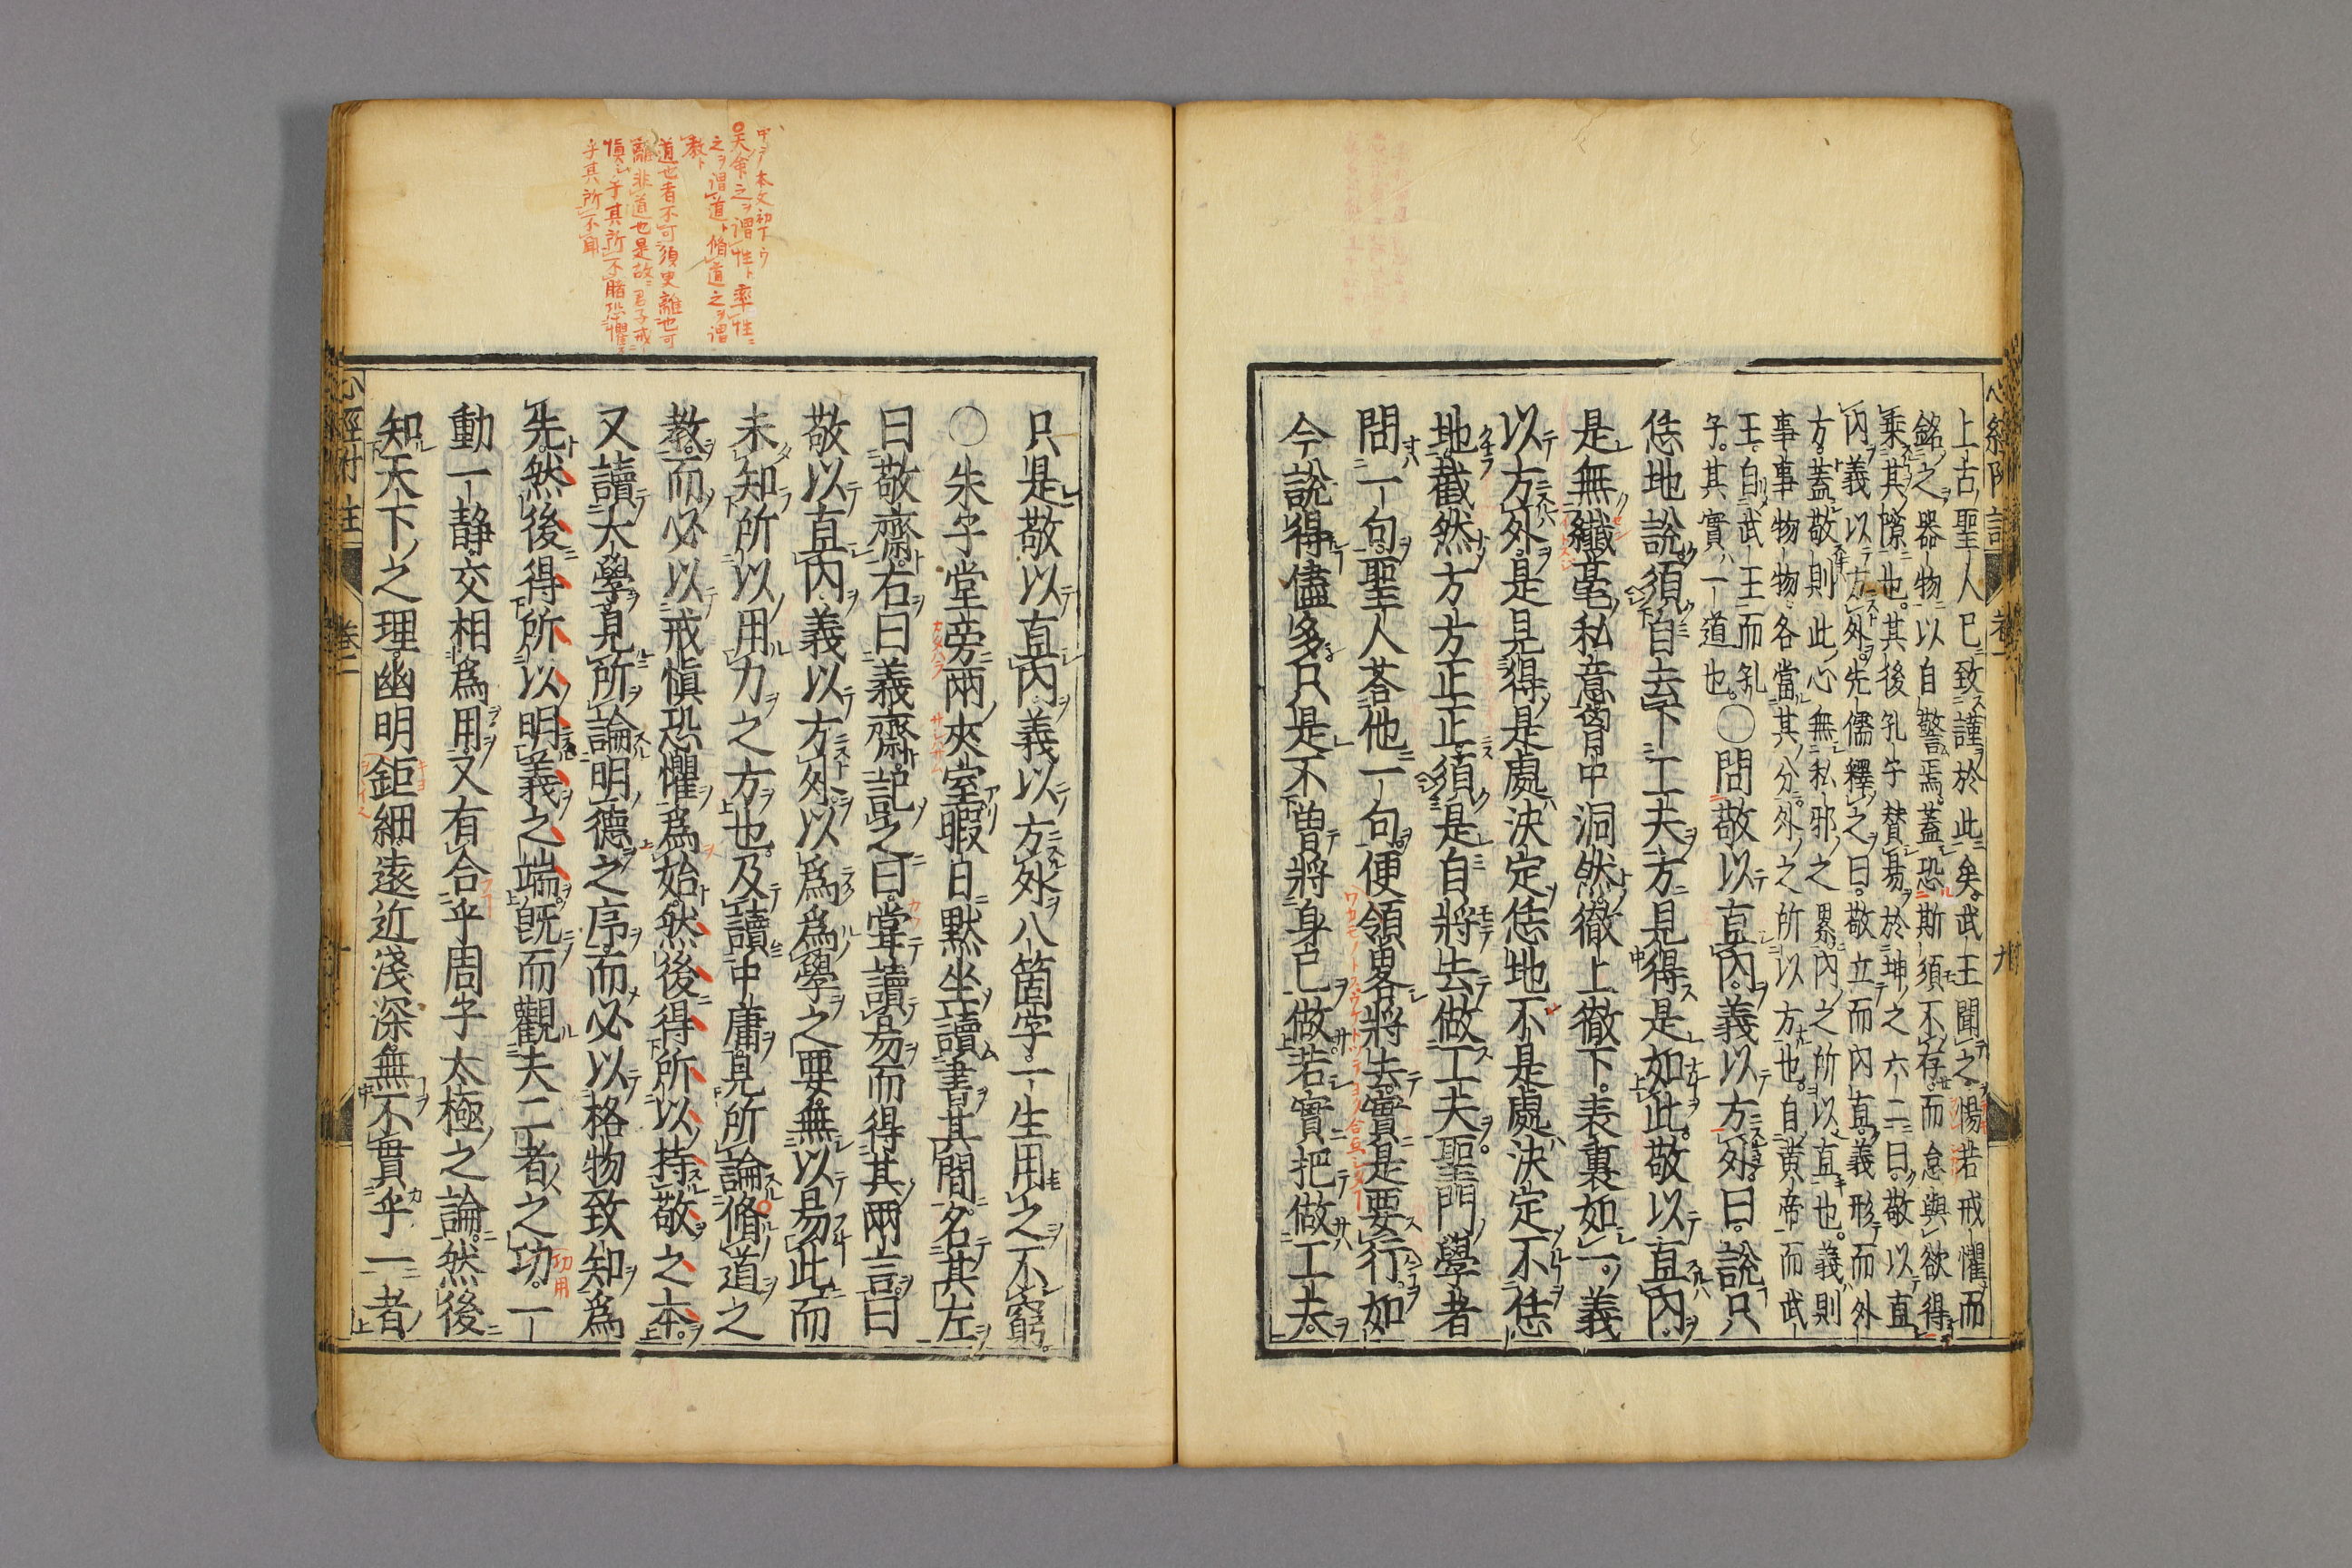 心經附註 卷一
上古聖人已致謹於此矣。武王聞之惕若戒懼而
銘之器物以自警焉。蓋恐斯須不存。而怠與欲得
乘其隙也。其後孔子賛易於坤之六二曰。敬以直
内義以方外。先儒釋之曰。敬立而内直。義形而外
方。蓋敬則此心無私邪之累。内之所以直也。義則
事事物物各當其分。外之所以方也。自黄帝而武
王。自武王而孔
子。其實一道也。〇問敬以直内。義以方外。曰。說只
恁地說須自去下工夫方見得是如此。敬以直内
是無纖毫私意胷中洞然。徹上徹下。表裏如一。義
以方外。是見得是處決定恁地不是處決定不恁
地截然方方正正。須是自將去做工夫。聖門學者
問一句。聖人荅他一句。便領畧將去。實是要行。如
今說得儘多。只是不曽將身已做。若實把做工夫。
只是敬以直内。義以方外八箇字。一生用之不窮。
〇朱子堂旁兩夾室暇日默坐讀書其間。名其左
曰敬齋。右曰義齋。記之曰。甞讀易而得其兩言。曰
敬以直内。義以方外。以爲爲學之要無以易此。而
未知所以用力之方也。及讀中庸。見所論脩道之
教。而必以戒愼恐懼爲始。然後得所以持敬之本。
又讀大學見所論明德之序。而必以格物致知爲
先。然後得所以明義之端。旣而觀夫二者之功。一
動一静交相爲用。又有合乎周子太極之論。然後
知天下之理。幽明鉅細。遠近淺深。無不貫乎一者
心經附註 卷一
中ヲ本文初下ウ
天命之ヲ謂性ト率性ニ
之ヲ謂道ト脩道之ヲ謂
教ト
道也者不可須臾離也可
離非道也是故ニ君子戒
愼乎其所不睹恐懼
乎其所不聞
功用